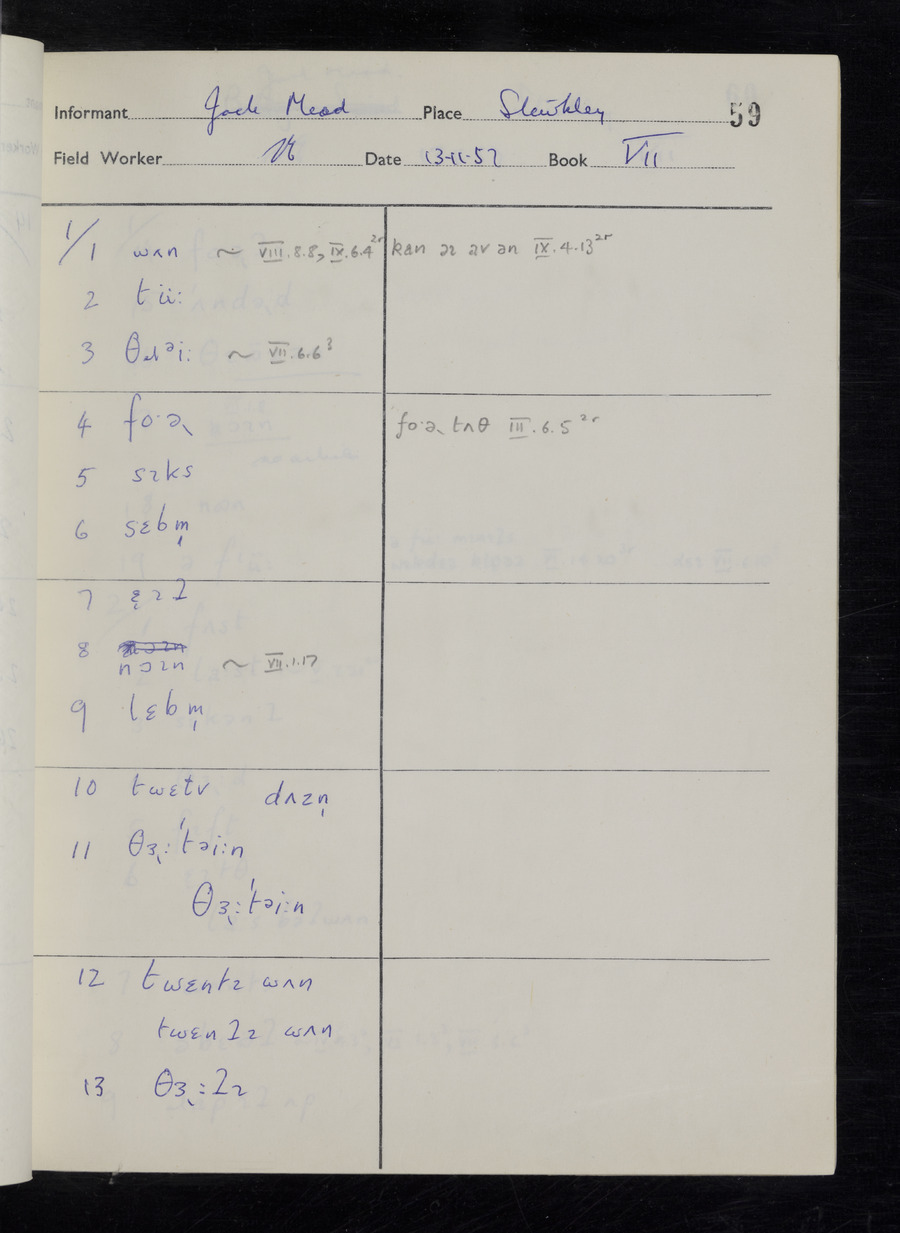 Informant Jack Mead Place Stewkley 59
Field Worker Date 13-11-57 Book VII
1/1 wʌn ~ VIII.8.8, IX.6.4²ʳ kan əz əv ən IX.4.13²ʳ
2 tüː
3 θɹəiː ~ VII.6.6³
4 foˑə˞ foˑə˞ tʌθ III.6.5²ʳ
5 sɪks
6 sɛbm̩
7
8 nɔɪn ~ VII.1.17
9 lɛbm̩
10 twɛtv dʌzn̩
11 θɜ˞ːˈtəiːn
θɜ˞ːˈtəiːn
12 twɛntɪ wʌn
twɛnʔɪ wʌn
13 θɜ˞ːʔɪ